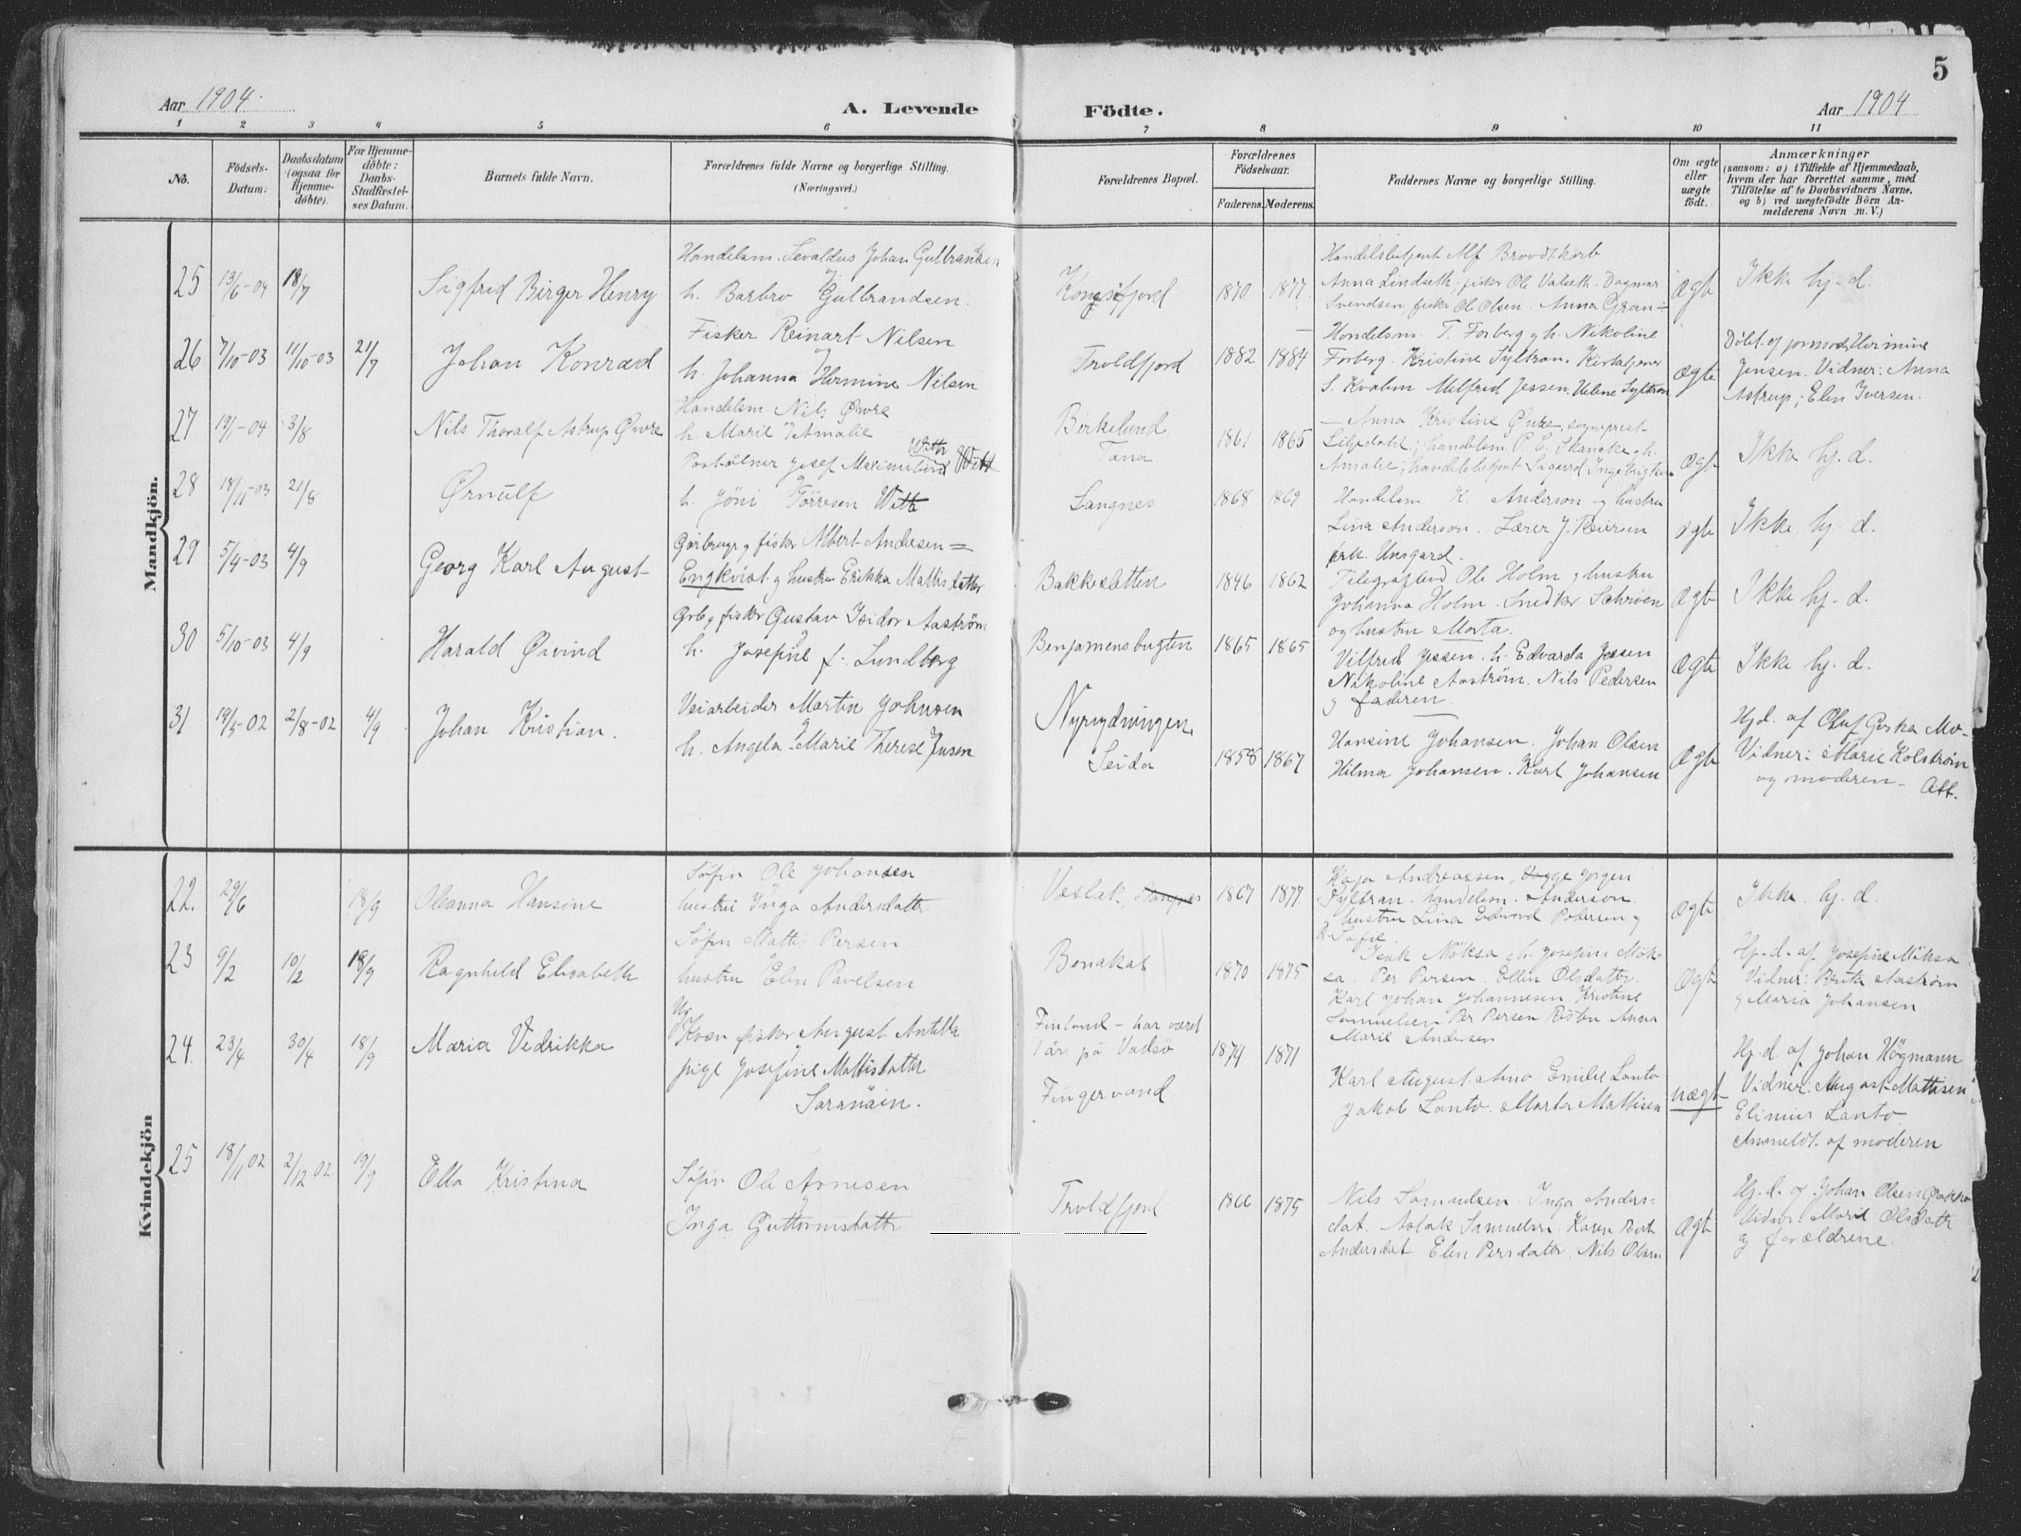 5
Aar 1904. A. Levende Födte. Aar 1904
1 2 3 4 5 6 7 8 9 10 11
No.
Födsels-Datum:
Daabsdatum (ogsaa for Hjemmedöbte).
For Hjemmedöbte: Daabs-Stadfæstelses Datum.
Barnets fulde Navn.
Forældrenes fulde Navne og borgerlige Stilling.
(Næringsvei.)
Forældrenes Bopæl.
Forældrenes Födselsaar.
Faderens. Moderens.
Faddernes Navne og borgerlige Stilling.
Om ægte eller uægte födt.
Anmærkninger
(saasom: a) i Tilfælde af Hjemmedaab,
hvem der har forrettet samme, med
Tilföielse af to Daabsvidners Navne,
og b) ved uægtefödte Börn An-
melderens Navn m. V.)
Mandkjön.
25 13/6-04 18/7 Sigfred Birger Henry
Handelsm. Sevaldus Johan Gulbrandsen
h. Barbro Gulbrandsen.
Kongsfjord 1870 1877
Handelsbetjent Alf Broodtkorb
Anna Lindseth, fisker Ol Valseth. Dagmar
Svendsen, fisker Ol Olsen. Anna Gran-
Ægte Ikke hj. d.
26 7/10-03 11/10-03 21/7 Johan Konrad
Fisker Reinart Nilsen
h. Johanna Hermine Nilsen
Troldfjord 1882 1884
Handelsm. T. Forberg og h. Nikoline
Forberg. Kristine Syltran. Kirketjener
S. Kvalm Milfred Jessen,
ægte
Döbt af jormod. Hermine
Jensen. Vidner: Anna
Astrup; Elen Iversen.
27 19/1-04 3/8 Nils Thoralf Astrup Øwre
Handelsm. Nils Øwre
h. Marie Amalie
Birkelund, Tana. 1861 1865
Anna Kristine Øwre, sogneprest
Lilledahl; handelsm. P. E. Skancke og h.
Amalie; handelsbetjent Sigurd
Ægte Ikke hj. d.
28 18/11-03 21/8 Ørnulf
Witt
Postaabner Josef Maximilian Witt
h. Jöni Törresen Witt
Langnes 1868 1869
Handelsm. K. Anderson og hustru
Lina Anderson. Lærer J. Reiersen
frk. Unsgard.
ægte Ikke hj. d.
29 5/9-03 4/9 Georg Karl August
Gaardbruger og fisker Albert Andersen =
Engkvist og hustru Erikka Mattisdatter
Bakkesletten 1846 1862
Telegrafbud Ole Holm og hustru
Johanna Holm. Snedker Schrøen
og hustru Marta.
Ægte Ikke hj. d.
30 5/10-03 4/9 Harald Øivind
Grb. og fisker Gustav Isidor Aaström
h. Josefine f. Lundberg
Benjamensbugten 1865 1865
Vilfred Jessen. h. Edvarda Jessen
Nikoline Aaström. Nils Pedersen
og faderen.
Ægte Ikke hj. d.
31 19/5-02 2/8-02 4/9 Johan Kristian.
Veiarbeider Martin Johnsen
h. Angela Marie Therese Jnsen
Nyrydningen, Seida 1858 1867
Hansine Johansen. Johan Olsen
Hilma Johansen. Karl Johansen
Ægte
Hj. d. af Oluf Goska Mo-
Vidner: Marie Kolström
og moderen. Att.
Kvindekjön
22. 29/6 18/9 Oleanna Hansine
Söfin Ole Johansen
hustru Inga Andersdatter
Veslak, 1867 1877
Kaja Andreassen, Jörgen
Syltran. handelsm. Anderson.
og hustru Lina Edvard Pedersen og
h. Sofie
Ægte Ikke hj. d.
23 9/2 10/2 18/9 Ragnhild Elisabeth
Söfin Mattis Persen
hustru Elin Pavelsen
Bonakas 1870 1875
Isak Möksa og h. Josefine Mök-
sa. Per Persen. Ellen Olsdatter.
Karl Johan Johannesen. Kristine
Samuelsen Per Persen Risten Anna
Marie Andersen
Ægte
Hj. d. af Josefine Möksa
Vidner: Aaström
og Maria Johansen
24. 23/4 30/4 18/9 Maria Vedrikka
Ug
Kvæn fisker August Antilla
pige Josefine Mattisdatter
Saranäin.
Finland - har været
1 år på Vadsö
Fingervand
1874 1871
Karl August Aino Emilie Lanto
Jakob Lanto. Marta Mattisen
uægt
Hj. d. af Johan Högmann
Vidner: August Mattisen
Lanto.
Anmeldt af moderen
25 18/11 02 2/12 02 19/9 Ella Kristina
Söfin Ole Arnesen
Inga Guttormsdatter
Troldfjord 1866 1875
Nils Samuelsen. Inga Anders-
dat. Aslak Samuelsen. Karen Berit
Andersdat. Elen Persdatter. Nils Olsen
Ægte
Hj. d. af Johan Olsen
Vidner: Marie Olsdatter
og forældrene.